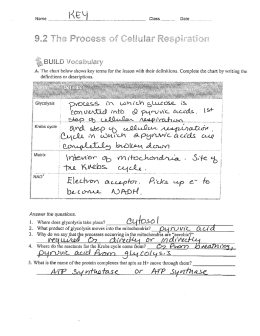 Name KEY Class Date
9.2 The Process of Cellular Respiration
BUILD Vocabulary
A. The chart below shows key terms for the lesson with their definitions. Complete the chart by writing the
definitions or descriptions.
Glycolysis process in which glucose is
converted into 2 pyruvic acids. 1st
step of cellular respiration.
Krebs cycle 2nd step of cellular respiration.
Cycle in which 2 pyruvic acids are
completely broken down
Matrix Interior of mitochondria. Site of
the Krebs cycle.
NAD+ Electron acceptor. Picks up e- to
become NADH.
Answer the questions.
1. Where does glycolysis take place? cytosol
2. What product of glycolysis moves into the mitochondria? pyruvic acid
3. Why do we say that the processes occurring in the mitochondria are "aerobic?"
required O2 directly or indirectly
4. Where do the reactants for the Krebs cycle come from? O2 from breathing,
pyruvic acid from glycolysis
5. What is the name of the protein complexes that spin as H+ move through them?
ATP synthetase or ATP synthase